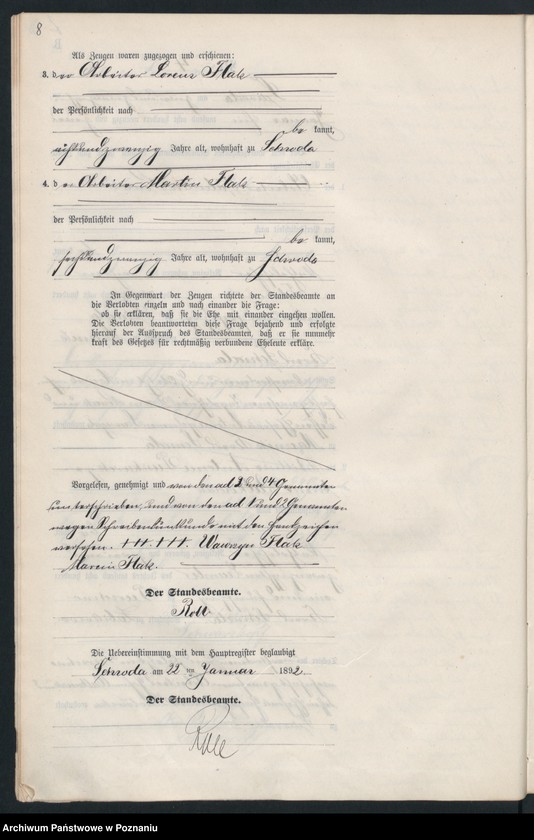 8
Als Zeugen waren zugezogen und erschienen:
3. der Arbeiter Lorenz Flak
der Persönlichkeit nach
be kannt,
achtundzwanzig Jahre alt, wohnhaft zu Schroda
4. der Arbeiter Martin Flak
der Persönlichkeit nach
be kannt,
sechsundzwanzig Jahre alt, wohnhaft zu Schroda
In Gegenwart der Zeugen richtete der Standesbeamte an
die Verlobten einzeln und nach einander die Frage:
ob sie erklären, daß sie die Ehe mit einander eingehen wollen.
Die Verlobten beantworteten diese Frage bejahend und erfolgte
hierauf der Ausspruch des Standesbeamten, daß er sie nunmehr
kraft des Gesetzes für rechtmäßig verbundene Eheleute erkläre.
Vorgelesen, genehmigt und von den ad 3 und 4 Genannten
unterschrieben, und von den ad 1 und 2 Genannten
wegen Schreibensunkunde mit den Handzeichen
versehen. +++. +++. Wawrzyn Flak
Marcin Flak.
Der Standesbeamte.
Roll
Die Uebereinstimmung mit dem Hauptregister beglaubigt
Schroda am 22 ten Januar 1892
Der Standesbeamte.
Roll
Archiwum Państwowe w Poznaniu